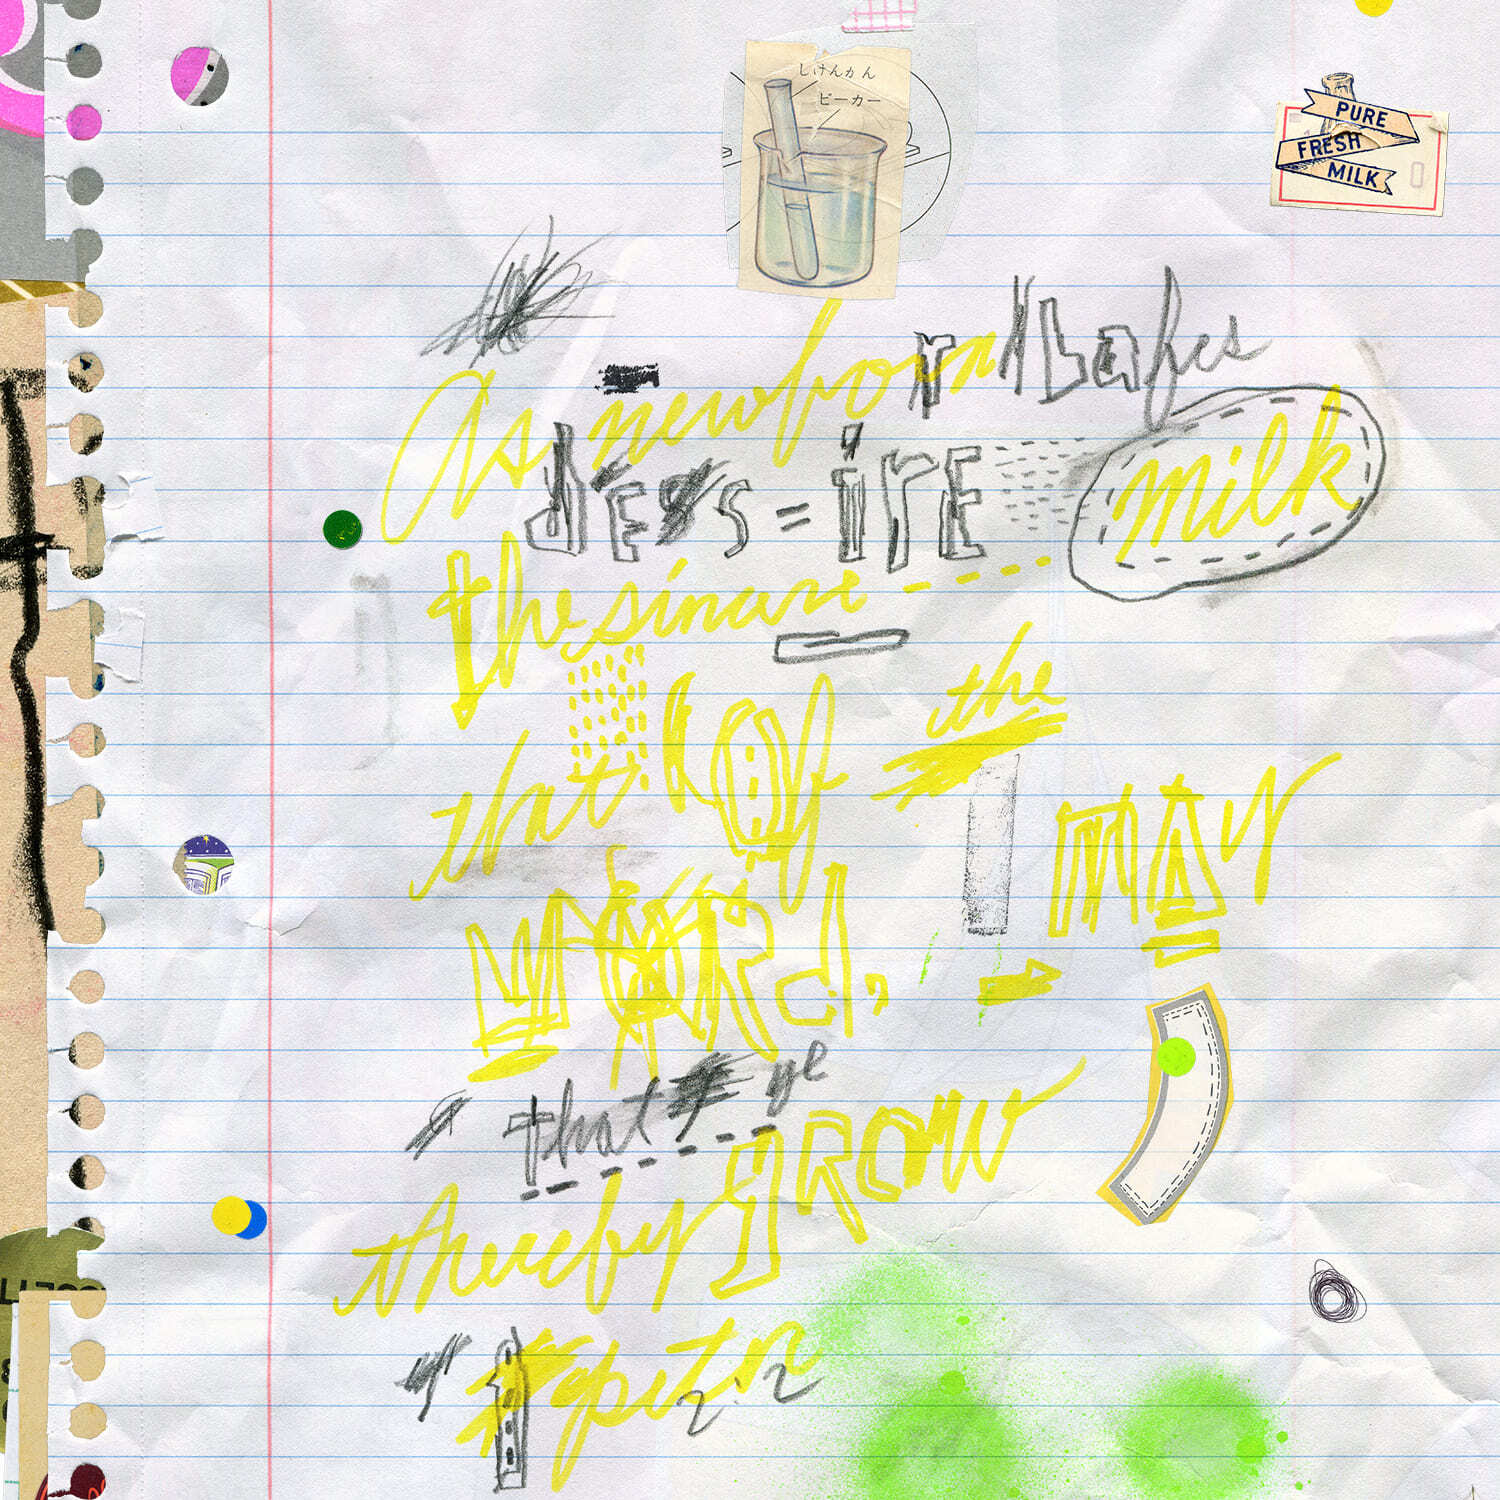 しけんかん
ビーカー
PURE
FRESH
MILK
As newborn babes
desire milk
the sincere
that of the
word, may
that ye
thereby grow
1 peter
2.2